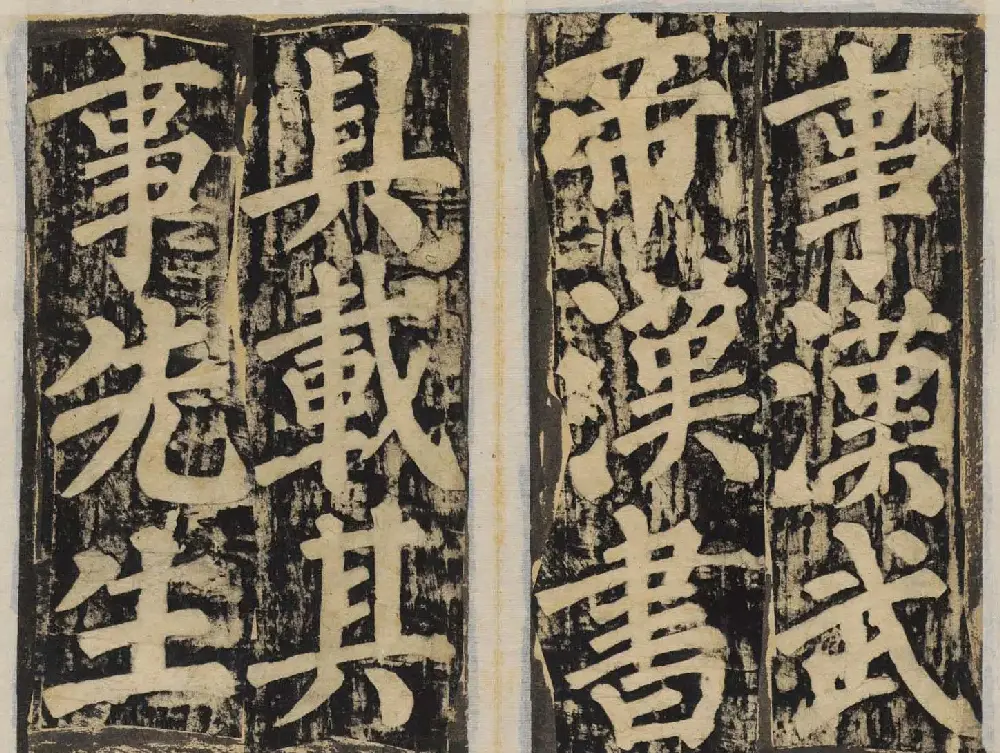 事漢武
帝漢書
具載其
事先生